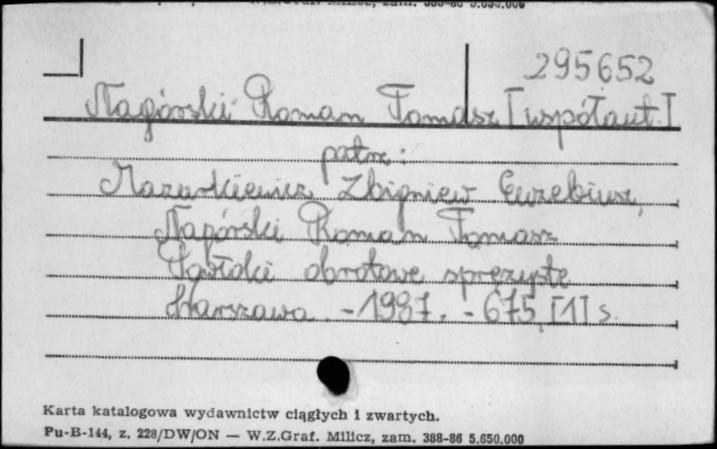 W.Z.Graf. Milicz, zam. 388-86 5.650.000
295652
Nagórski Roman Tomasz [współaut.]
patrz:
Mazurkiewicz Zbigniew Euzebiusz,
Nagórski Roman Tomasz
Powłoki obrotowe sprężyste
Warszawa. - 1987. - 675, [1] s.
Karta katalogowa wydawnictw ciągłych i zwartych.
Pu-B-144, z. 228/DW/ON — W.Z.Graf. Milicz, zam. 388-86 5.650.000